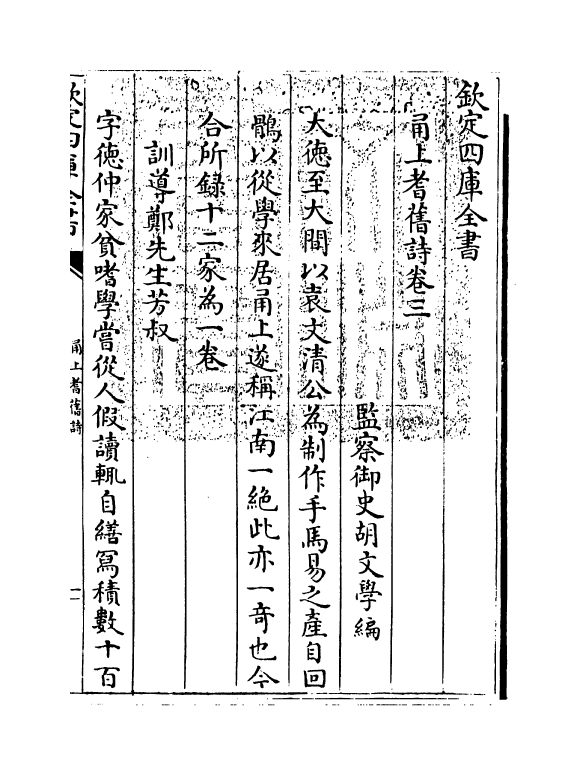 欽定四庫全書
甬上耆舊詩卷三
監察御史胡文學編
大徳至大間以袁文清公為制作手馬易之産自回
鶻以從學來居甬上遂稱江南一絶此亦一竒也今
合所録十二家為一卷
訓導鄭先生芳叔
字徳仲家貧嗜學嘗從人假讀輒自繕寫積數十百
欽定四庫全書
甬上耆舊詩
一